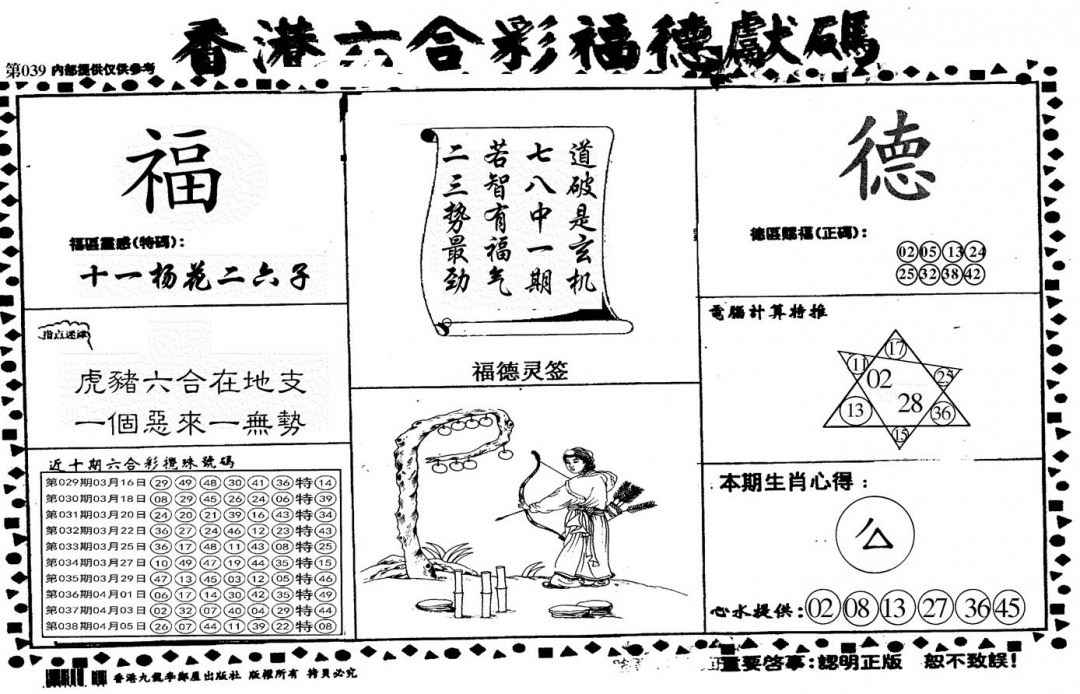 香港六合彩福德獻碼
第039 内部提供仅供参考
福
福區靈感(特碼):
十一杨花二六子
指点迷津
虎豬六合在地支
一個惡來一無勢
近十期六合彩攪珠號碼
第029期03月16日 29 49 48 30 41 36 特 14
第030期03月18日 08 29 45 26 24 06 特 39
第031期03月20日 24 20 21 39 16 43 特 34
第032期03月22日 36 27 24 46 12 23 特 43
第033期03月25日 36 17 48 11 43 08 特 25
第034期03月27日 10 49 47 19 44 35 特 15
第035期03月29日 47 13 45 03 12 05 特 46
第036期04月01日 06 17 14 30 42 35 特 49
第037期04月03日 02 32 07 40 04 29 特 44
第038期04月05日 26 07 44 11 39 22 特 08
道破是玄机
七八中一期
若智有福气
二三势最劲
福德灵签
德
德區賜福(正碼):
02 05 13 24
25 32 38 42
電腦計算特推
17
11 02 25
13 28 36
15
本期生肖心得:
心水提供: 02 08 13 27 36 45
香港九龍李鄭屋出版社 版權所有 拷貝必究
重要啓事:認明正版 恕不致誤!